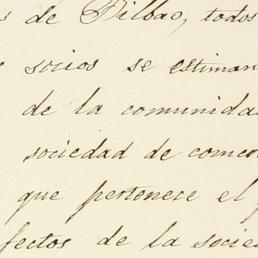 s de Bilbao, todos
socios se estiman
de la comunidad
sociedad de comer
que pertenece el
fectos de la socie